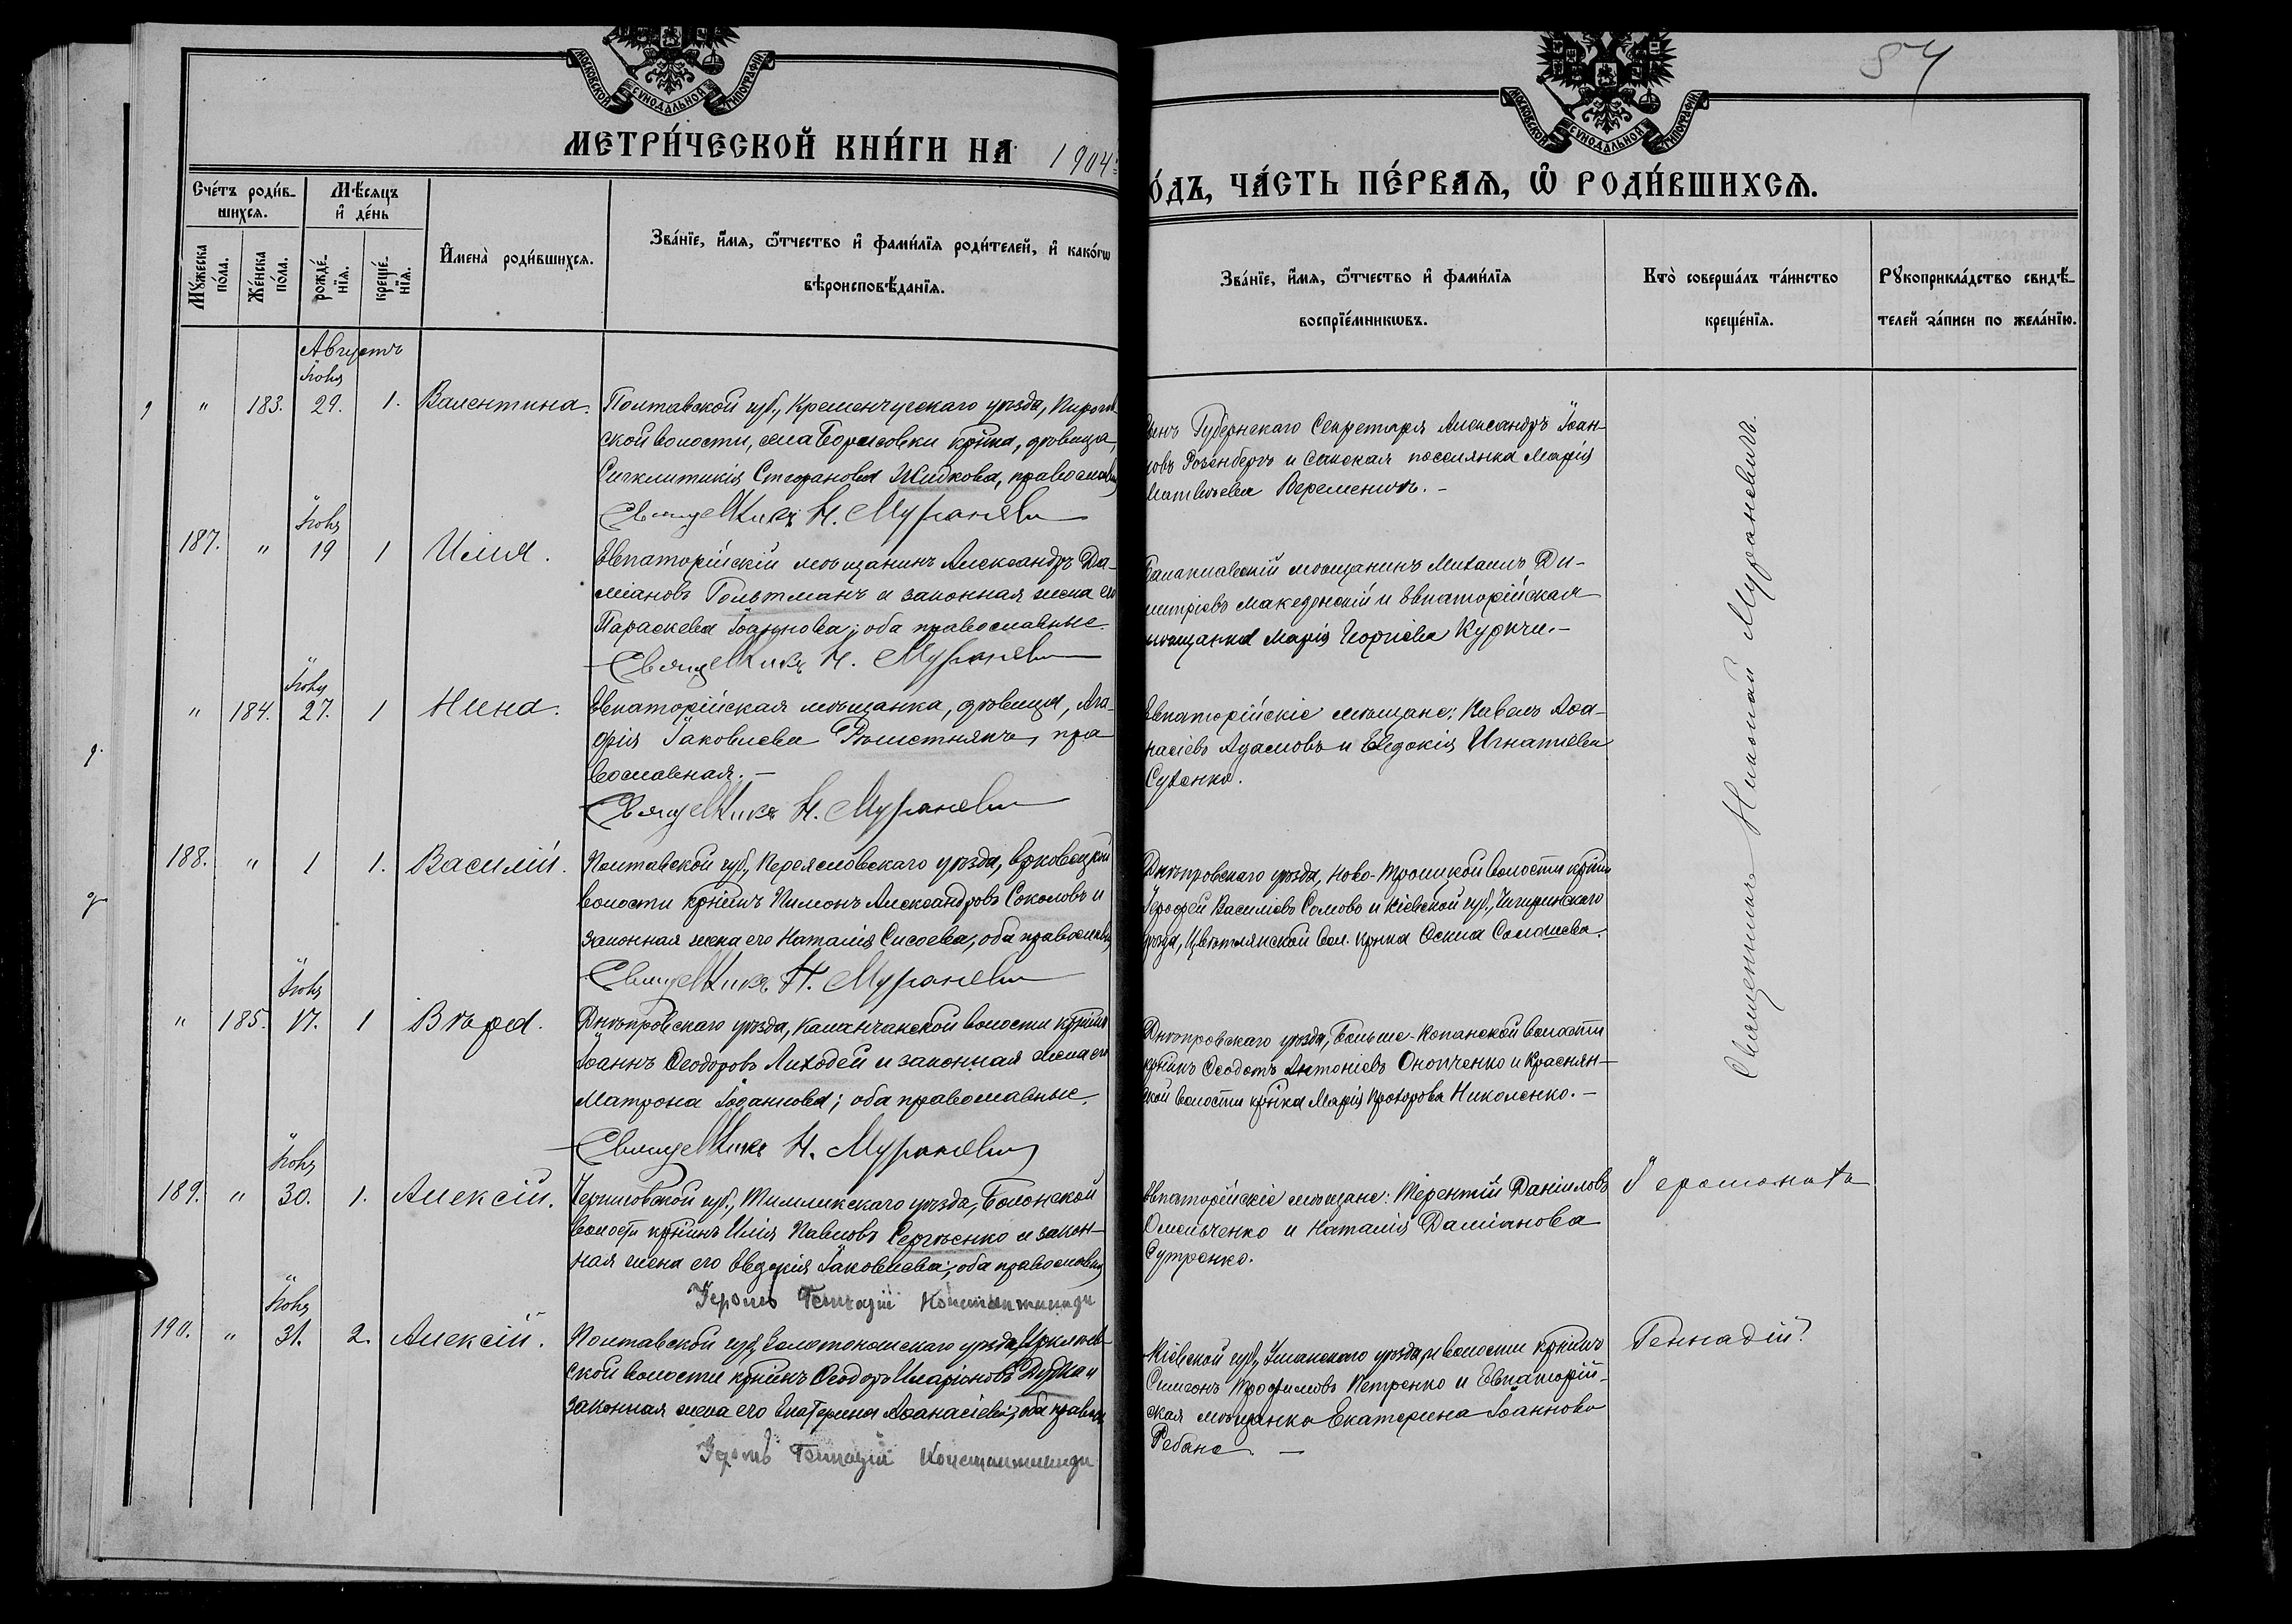 МОСКОВСКОЙ СУНОДАЛЬНОЙ ТИПОГРАФІИ
МОСКОВСКОЙ СУНОДАЛЬНОЙ ТИПОГРАФІИ
54
МЕТРИ́ЧЕСКОЙ КНИ́ГИ НА 1904
О́ДЪ, ЧА́СТЬ ПЕ́РВАЯ, Ѡ҆ РОДИ́ВШИХСЯ.
Сче́тъ роди́в-
шихся.
Мѣ́сяцъ
и҆ де́нь
Мꙋ́жеска по́ла.
Же́нска по́ла.
рожде́-нїя.
креще́-нїя.
И҆мена̀ роди́вшихся.
Зва́нїе, и҆́мя, ѻ҆́тчество и҆ фами́лїя роди́телей, и҆ како́гѡ
вѣроисповѣ́данїя.
Зва́нїе, и҆́мя, ѻ҆́тчество и҆ фами́лїя
воспрїе́мникѡвъ.
Кто̀ соверша́лъ та́инство
креще́нїя.
Рꙋкоприкла́дство свидѣ́-
телей за́писи по жела́нїю.
Августъ
Іюля
" 183. 29. 1. Валентина.
Полтавской губ., Кременчугскаго уѣзда,
ской волости, села Борисовки крнка, дѣвица,
Сигклитикія Стефанова Жидкова, православн
Священникъ Н. Мураневичъ
Губернскаго Секретаря Александръ Іоан-
новъ Розенбергъ и Сакская поселянка Марія
Матвѣева Веременичъ. -
Іюля
187. " 19 1 Илія.
Евпаторійскій мѣщанинъ Александръ Да-
міановъ Гольтманъ и законная жена его
Параскева Іоаннова; оба православные.
Священникъ Н. Мураневичъ
Балаклавскій мѣщанинъ Михаилъ Ди-
митріевъ Македонскій и Евпаторійская
мѣщанка Марія Георгіева Куркчи. -
Іюля
" 184. 27. 1 Нина.
Евпаторійская мѣщанка, дѣвица, Ага-
фія Іаковлева Рѣшетнякъ, пра
вославная. -
Священникъ Н. Мураневичъ
Евпаторійскіе мѣщане: Павелъ Аѳа-
насіевъ Адамовъ и Евдокія Игнатіева
Сухенко.
188. " 1 1. Василій.
Полтавской губ., Переясловскаго уѣзда, Ерковецкой
волости крнинъ Пимонъ Александровъ Соколовъ и
законная жена его Наталія Сисоева, оба православн
Священникъ Н. Мураневичъ
Днѣпровскаго уѣзда, Ново-Троицкой волости крнинъ
Іероѳей Василіевъ Сомовъ и Кіевской губ., Чигиринскаго
уѣзда, Цвѣтлянской вол. крнка
Іюля
" 185. 17. 1 Вѣра.
Днѣпровскаго уѣзда, Каланчакской волости крнинъ
Іоаннъ Ѳеодоровъ Лиходей и законная жена его
Матрона Іоаннова; оба православные.
Священникъ Н. Мураневичъ
Днѣпровскаго уѣзда, Больше-Копанской волости
крнинъ Ѳеодотъ Антоніевъ Онопченко и Краснян-
ской волости крнка Марія Прохорова Николенко. -
Священникъ Николай Мураневичъ
Іюля
189. " 30. 1. Алексій.
Черниговской губ., уѣзда, Болонской
волости крнинъ Илія Павловъ Сергѣенко и закон-
ная жена его Евдокія Іаковлева; оба православн
Іером. Геннадій Константиниди
Евпаторійскіе мѣщане: Терентій Даніиловъ
Омельченко и Наталія Даміанова
Сутренко.
Іеромонахъ
Іюля
190. " 31. 2. Алексій.
Полтавской губ., Золотоношскаго уѣзда, Ирклѣев-
ской волости крнинъ Ѳеодоръ Иларіоновъ Дудка и
законная жена его Екатерина Аѳанасіева; оба правосл
Іером. Геннадій Константиниди
Кіевской губ., Уманскаго уѣзда, и волости крнинъ
Симеонъ Трофимовъ Петренко и Евпаторій-
ская мѣщанка Екатерина Іоаннова
Ребане -
Геннадій.